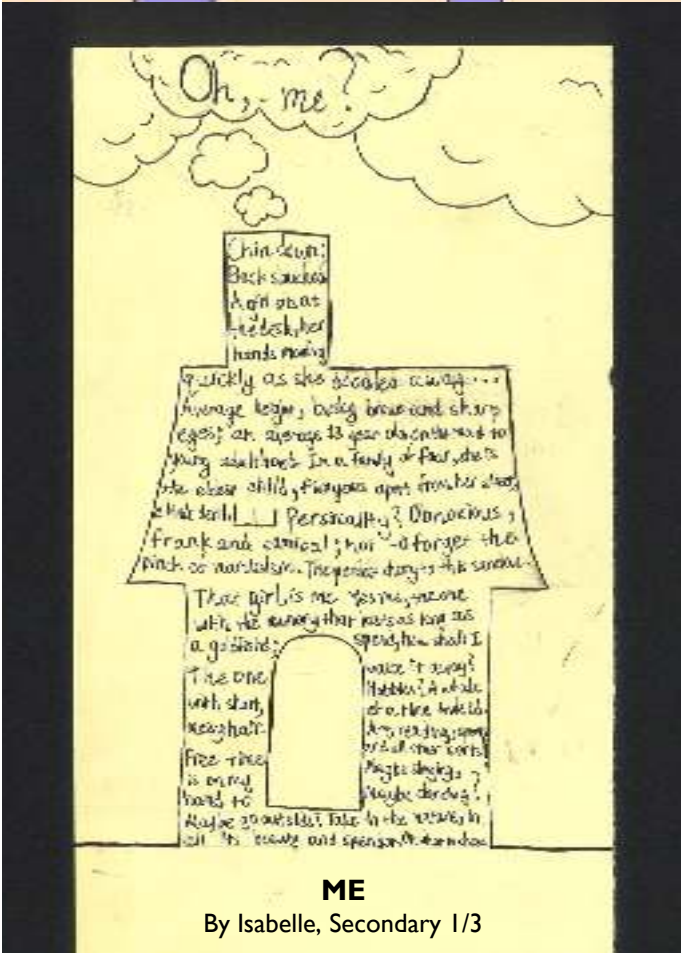 Oh, me?
Chin down;
Back slouched
A girl sat at
the desk, her
hands moving
quickly as she away...
Average height, brown and sharp
eyes; an average 13 year old on the road to
young adulthood. In a family of four, she is
the elder child, five years apart from her
Personality?
frank and ; not to forget the
pinch of
That girl is me. Yes me, the one
with the memory that lasts as long as
a goldfish;
The one
with short,
messy hair.
Free time
is on my
hand to
spend, how shall I
waste it away?
Hobbies? A whole
Art, reading,
and all other sorts
Maybe singing,
Maybe dancing?
Maybe go outside? Take in the nature, in
all its beauty and
ME
By Isabelle, Secondary 1/3